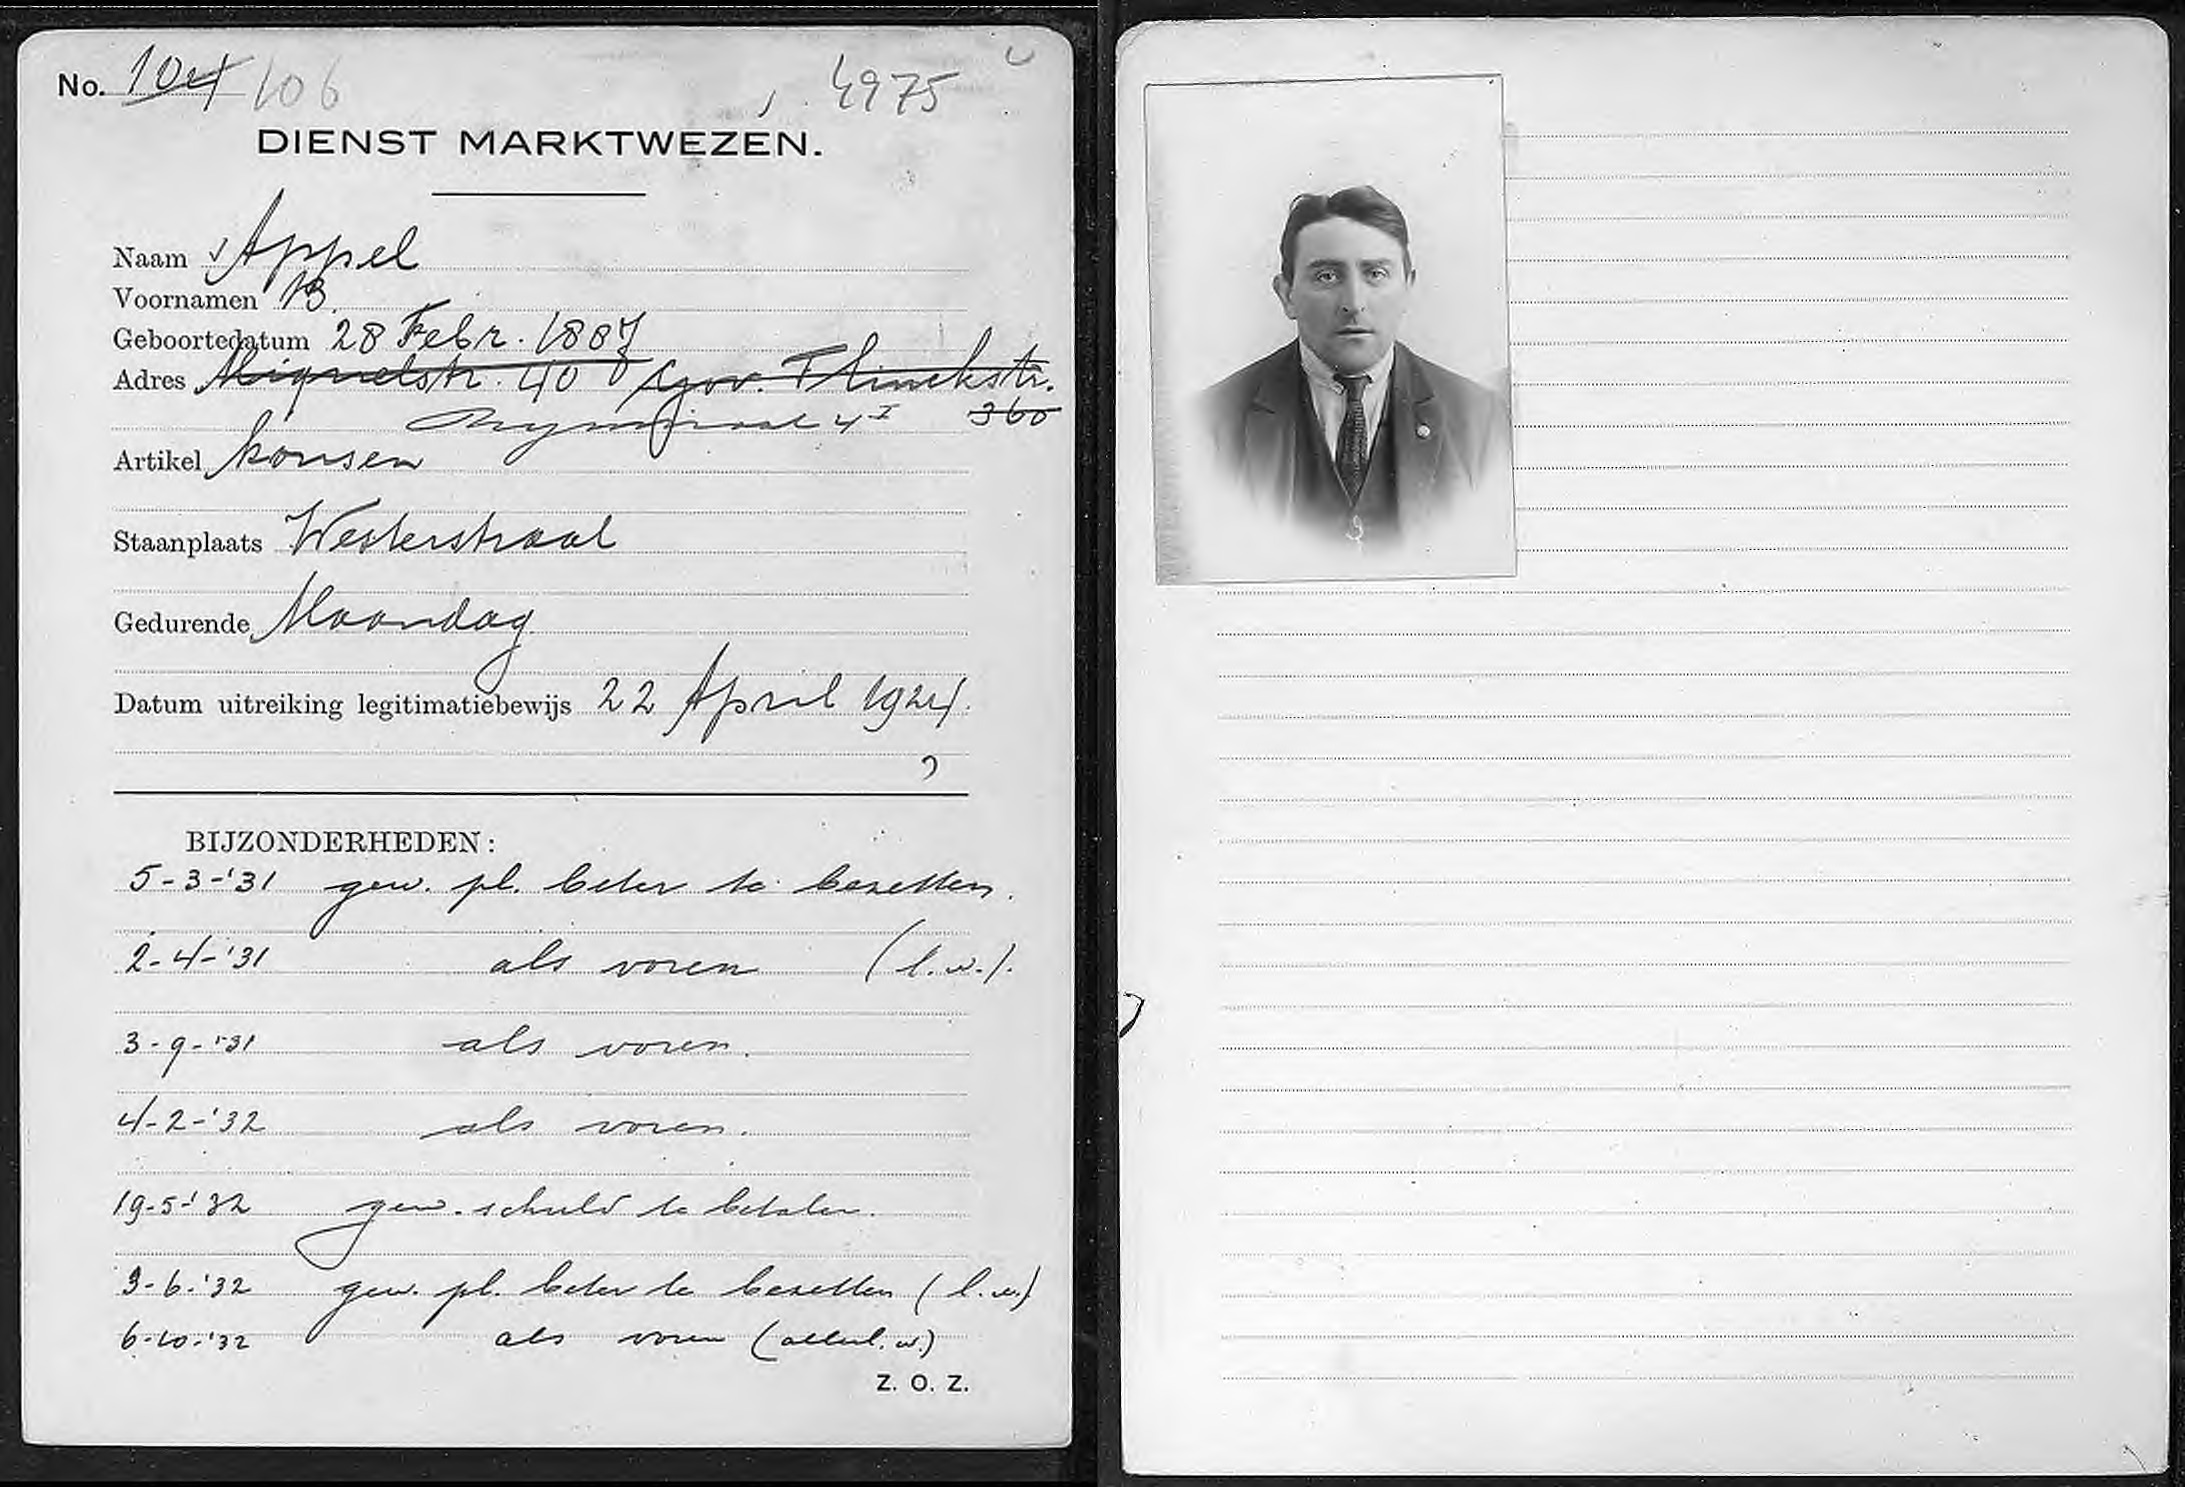 No. 104 106 4975
DIENST MARKTWEZEN.
Naam Appel
Voornamen B.
Geboortedatum 28 Febr. 1887
Adres Miquelstr. 40 Gov. Flinckstr.
4 I 360
Artikel kousen
Staanplaats Westerstraat
Gedurende Maandag
Datum uitreiking legitimatiebewijs 22 April 1924.
BIJZONDERHEDEN:
5-3-'31 gew. pl. beter te bezetten.
2-4-'31 als voren (l.w.).
3-9-'31 als voren.
4-2-'32 als voren.
19-5-'32 gew. schuld te betalen.
3-6-'32 gew. pl. beter te bezetten (l.w.)
6-10-'32 als voren (allerl. w.)
Z. O. Z.